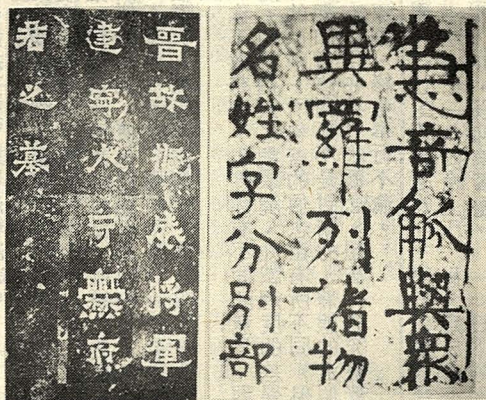 急奇觚與衆
異羅列諸物
名姓字分別部
晉故振威將軍
建寧太守爨府
君之墓